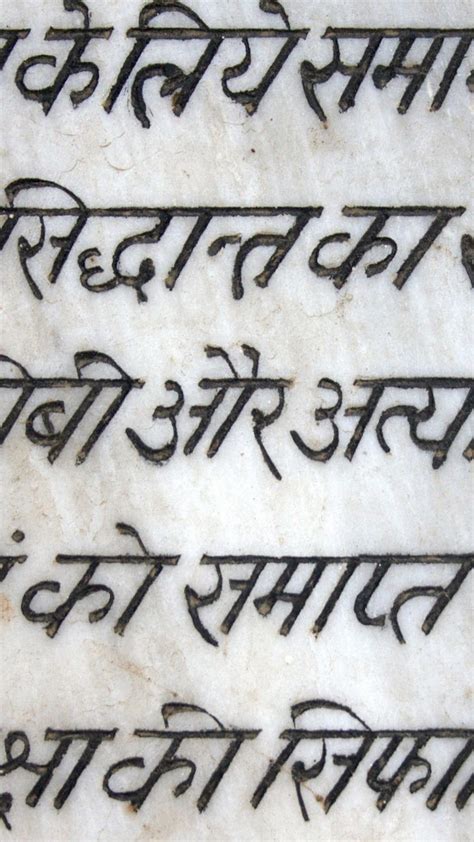 के लिये समा
सिद्धान्त का
बी और अत्य
को समाप्त
क्षा की सिफा